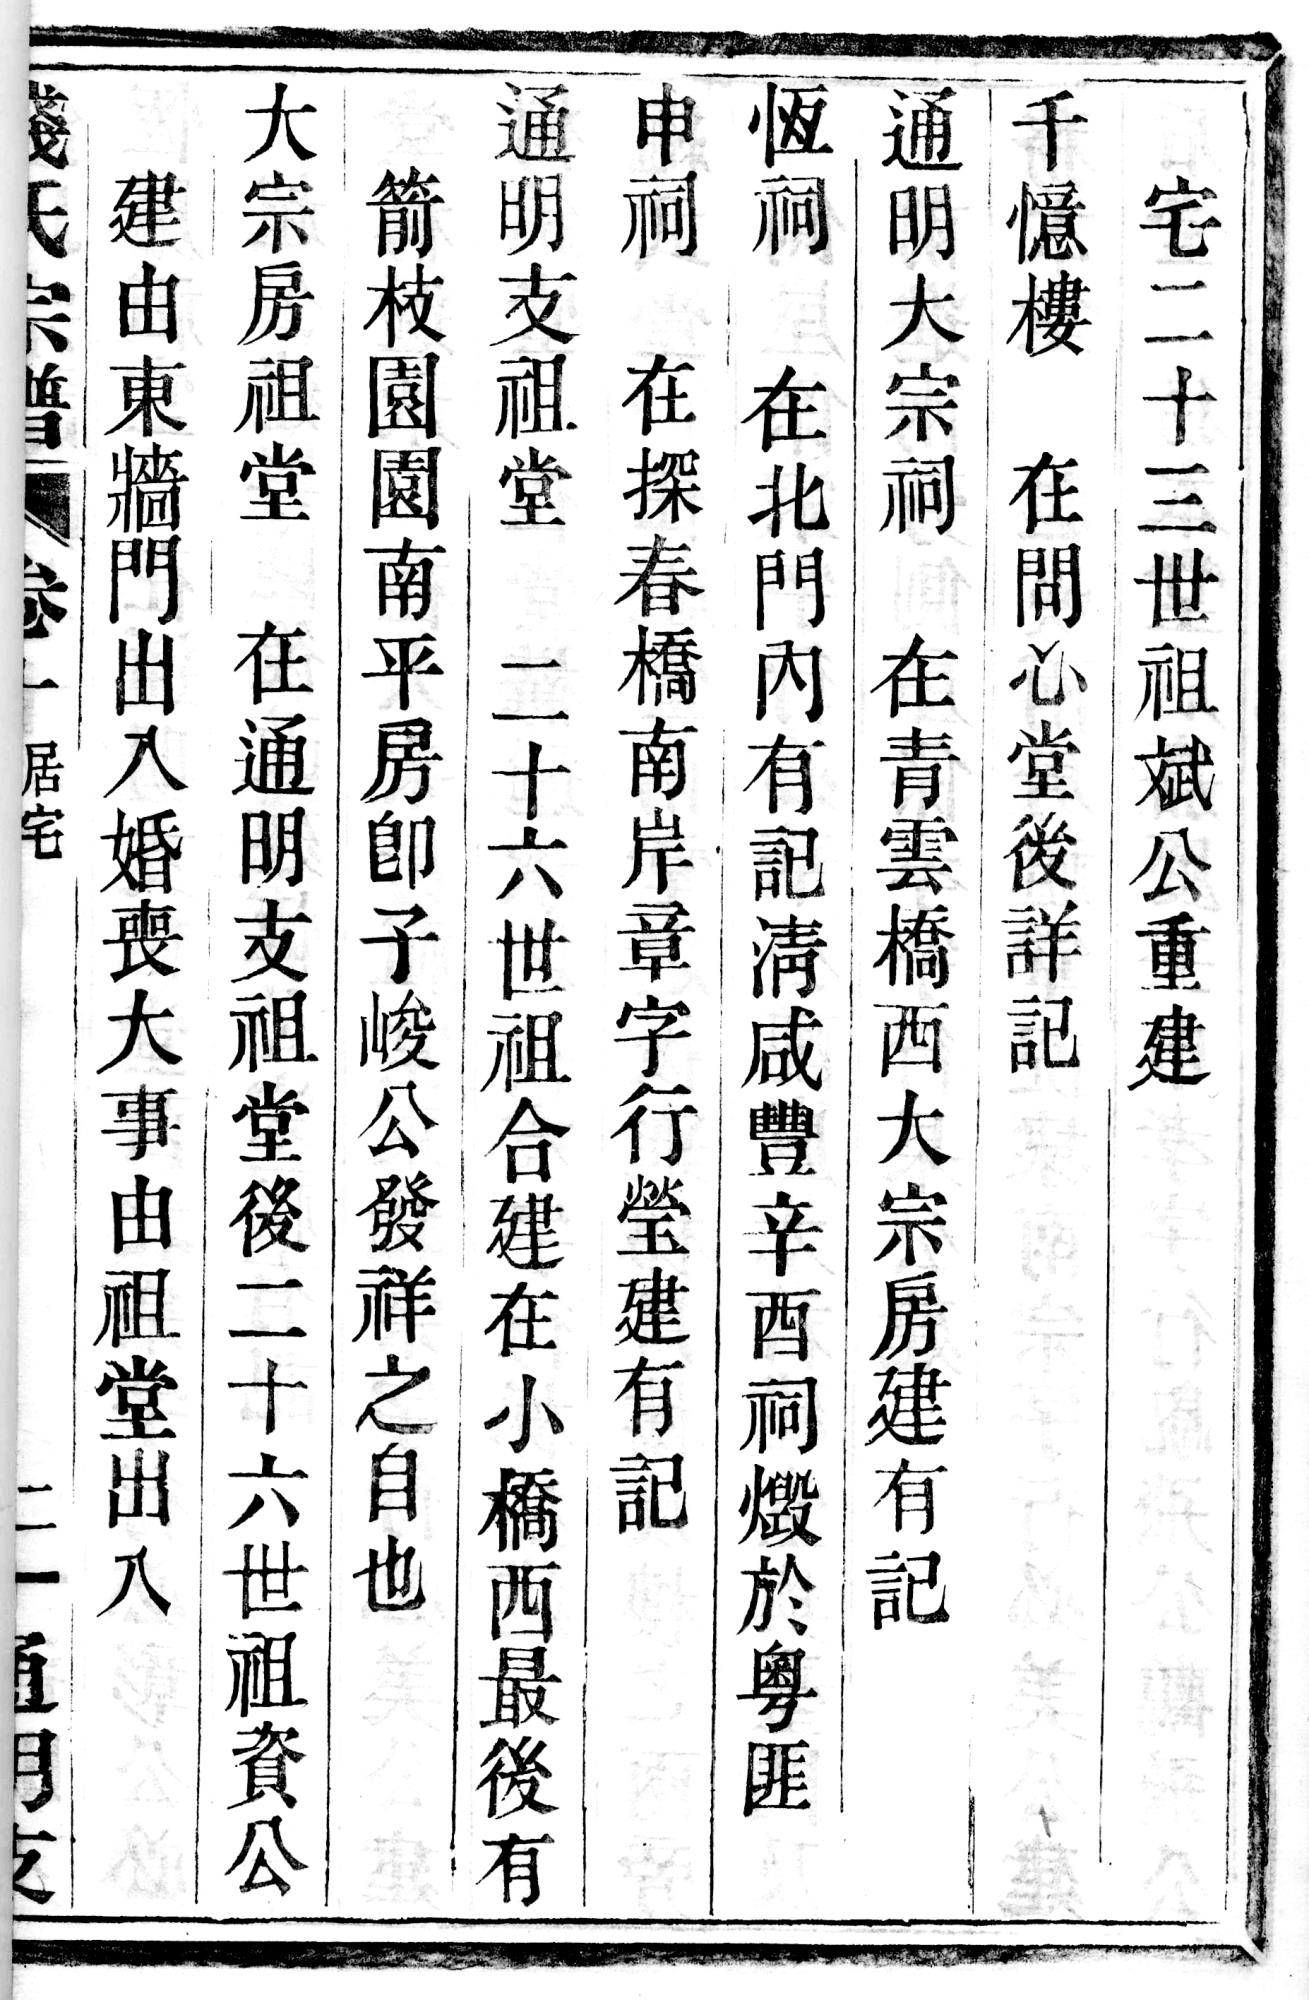 宅二十三世祖斌公重建
千憶樓　在問心堂後詳記
通明大宗祠　在青雲橋西大宗房建有記
恆祠　在北門內有記淸咸豐辛酉祠燬於粵匪
申祠　在探春橋南岸章字行瑩建有記
通明支祖堂　二十六世祖合建在小橋西最後有
箭枝園園南平房卽子峻公發祥之自也
大宗房祖堂　在通明支祖堂後二十六世祖資公
建由東牆門出入婚喪大事由祖堂出入
錢氏宗譜　卷一　居宅　二一　通明支